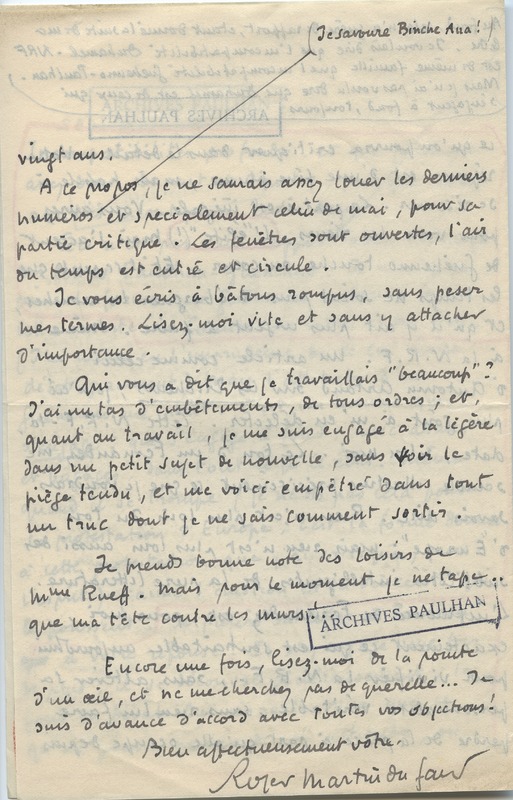 Je savoure Binche Ana !
vingt ans.
A ce propos, je ne saurais assez louer les derniers
numéros et spécialement celui de mai, pour sa
partie critique. Les fenêtres sont ouvertes, l'air
du temps est entré et circule.
Je vous écris à bâtons rompus, sans peser
mes termes. Lisez-moi vite et sans y attacher
d'importance.
Qui vous a dit que je travaillais "beaucoup" ?
J'ai un tas d'embêtements, de tous ordres ; et,
quant au travail, je me suis engagé à la légère
dans un petit sujet de nouvelle, sans voir le
piège tendu, et me voici empêtré dans tout
un truc dont je ne sais comment sortir.
Je prends bonne note des loisirs de
Mme Rueff. Mais pour le moment je ne tape..
que ma tête contre les murs...
ARCHIVES PAULHAN
Encore une fois, lisez-moi de la pointe
d'un œil, et ne me cherchez pas de querelle... Je
suis d'avance d'accord avec toutes vos objections !
Bien affectueusement vôtre.
Roger Martin du Gard